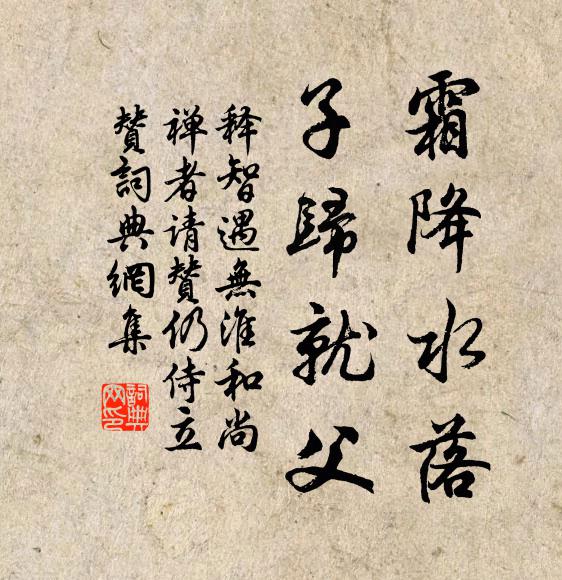 霜降水落
子歸就父
释智遇無准和尚
禅者请賛仍侍立
賛詞典網集
詞典网印